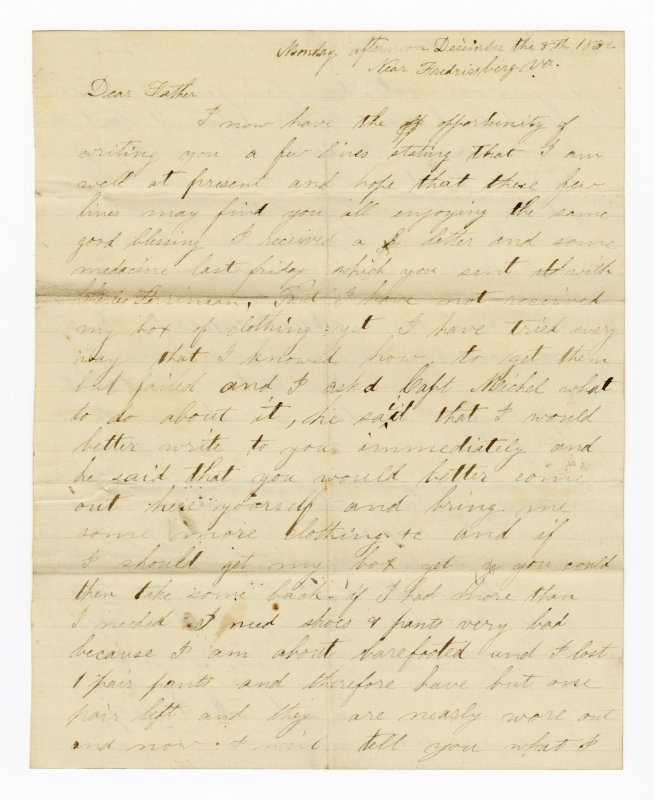 Monday afternoon December the 8th 1862
Near Fredricsberg Va.
Dear Father
I now have the opportunity of
writing you a few lines stating that I am
well at present and hope that these few
lines may find you all enjoying the same
good blessing I received a letter and some
medacine last friday which you sent with
Charles But I have not received
my box of clothing yet I have tried every
way that I knowed how to get them
but failed and I askd Capt Michel what
to do about it, he said that I would
better write to you immediately and
he said that you would better come
out here yourself and bring me
some more clothing &c and if
I should get my box yet you could
then take some back if I had more than
I needed I need shoes & pants very bad
because I am about barefooted und I lost
1 pair pants and therefore have but one
pair left and they are nearly wore out
and now I will tell you what I